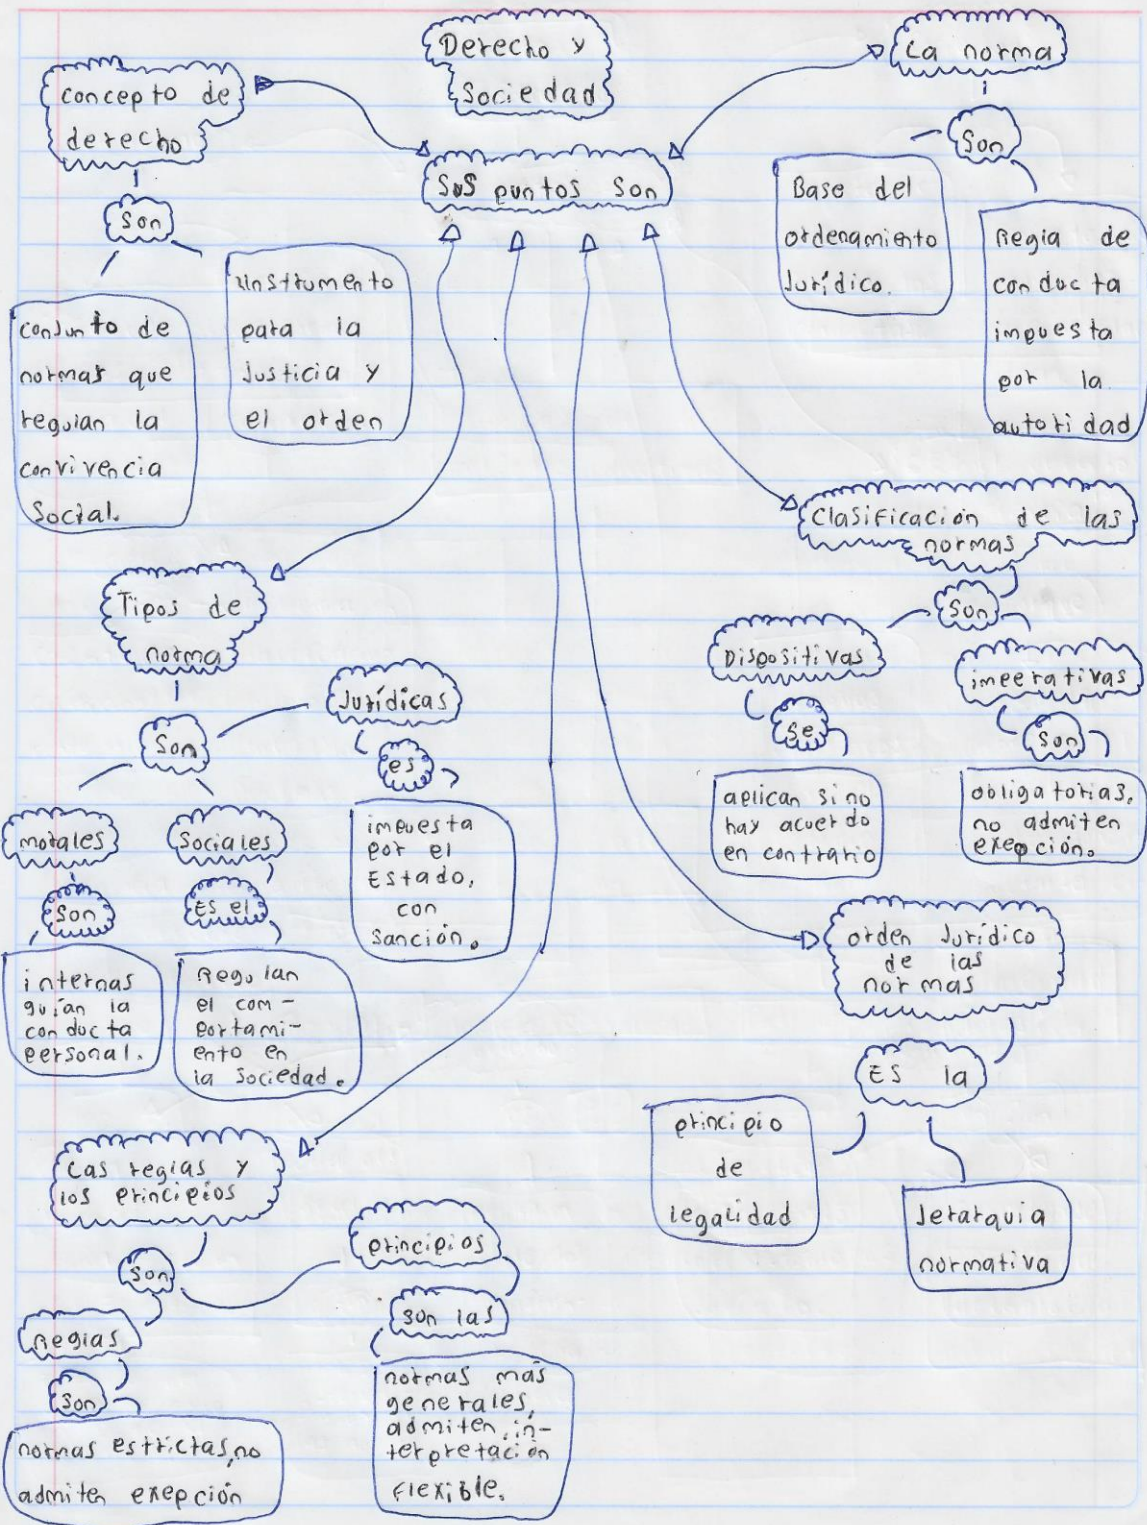 Derecho y
Sociedad
Sus puntos son
concepto de
derecho
Son
conjunto de
normas que
regulan la
convivencia
Social.
instrumento
para la
Justicia y
el orden
La norma
Son
Base del
ordenamiento
Jurídico.
Regla de
conducta
impuesta
por la
autoridad
Clasificación de las
normas
Son
Dispositivas
Se
aplican si no
hay acuerdo
en contrario
imperativas
Son
obligatorias,
no admiten
exepción.
Tipos de
norma
Son
Jurídicas
es
impuesta
por el
Estado,
con
Sanción.
morales
Son
internas
guían la
conducta
personal.
Sociales
Es el
Regulan
el com-
portami-
ento en
la Sociedad.
orden Jurídico
de las
normas
Es la
principio
de
legalidad
Jerarquia
normativa
Las reglas y
los principios
Son
Reglas
Son
normas estrictas, no
admiten exepción
principios
Son las
normas más
generales,
admiten in-
terpretación
flexible.